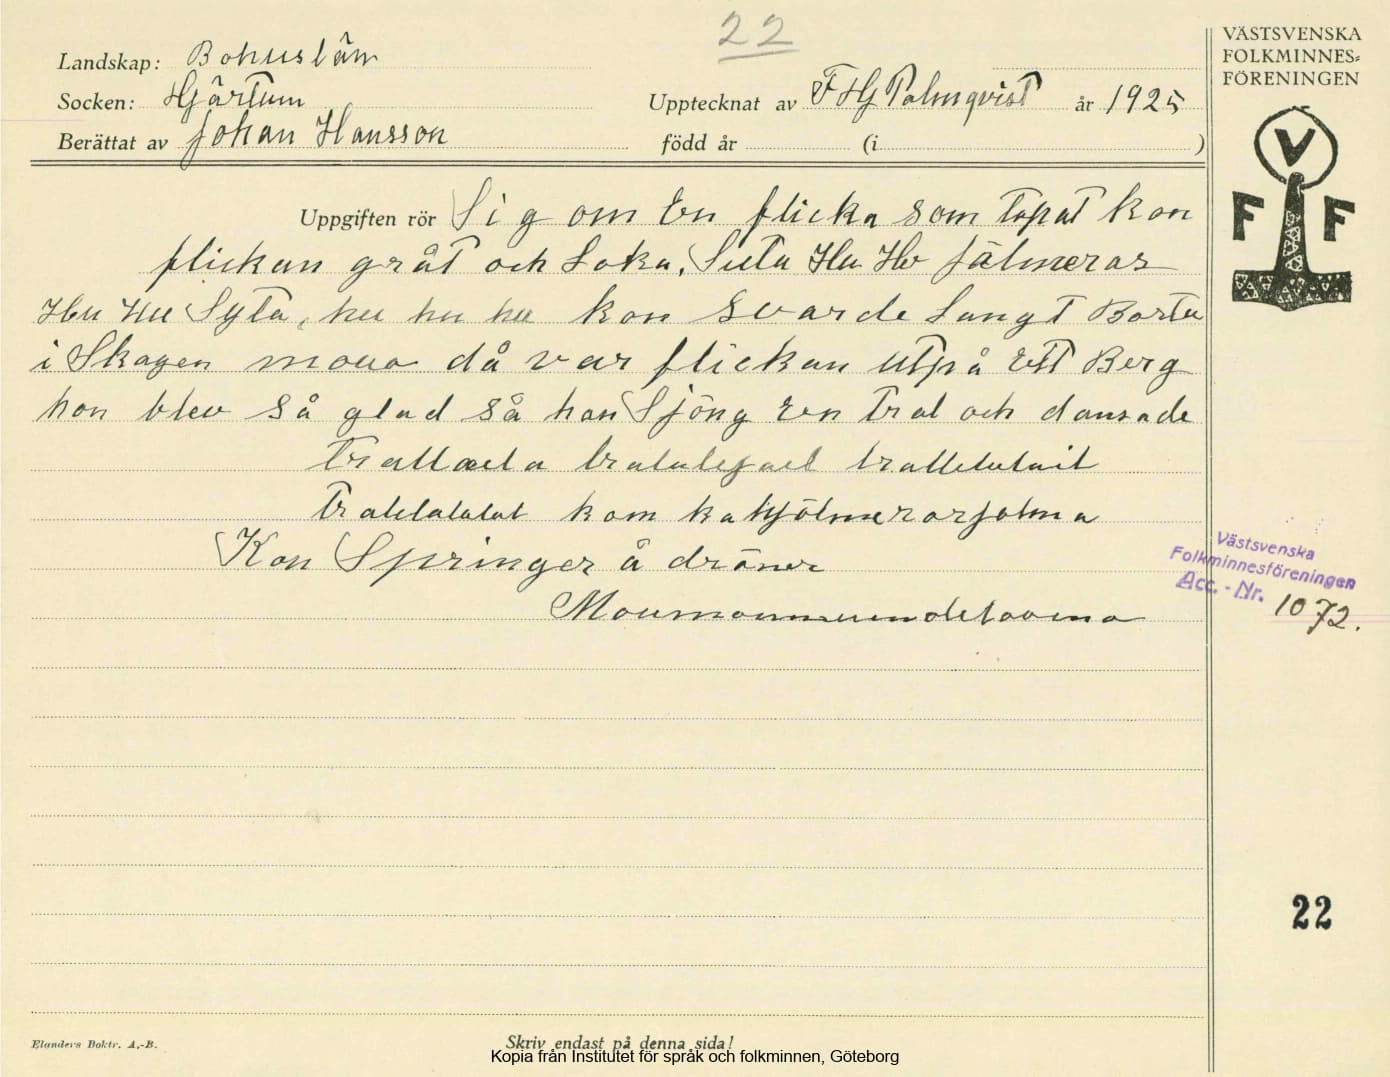 22
VÄSTSVENSKA
FOLKMINNES-
FÖRENINGEN
Landskap: Bohuslän
Socken: Hjärtum
Upptecknat av F HG Palmqvist år 1925
Berättat av Johan Hansson
född år (i )
V
F F
Uppgiften rör Sig om En flicka som tapat kon
flickan gråt och Soka, Suta Hu Hu fälmeras
Hu Hu Syta, hu hu hu kon Svarde Langt Borta
i Skogen moua då var flickan utpå Ett Berg
hon blev så glad så han Sjöng En Tral och dansade
Trallaela tralletulait
Trallalalal kom ka
Kon Springer å dräner
Västsvenska
Folkminnesföreningen
Acc. - Nr. 1072.
22
Elanders Boktr. A.-B.
Skriv endast på denna sida!
Kopia från Institutet för språk och folkminnen, Göteborg